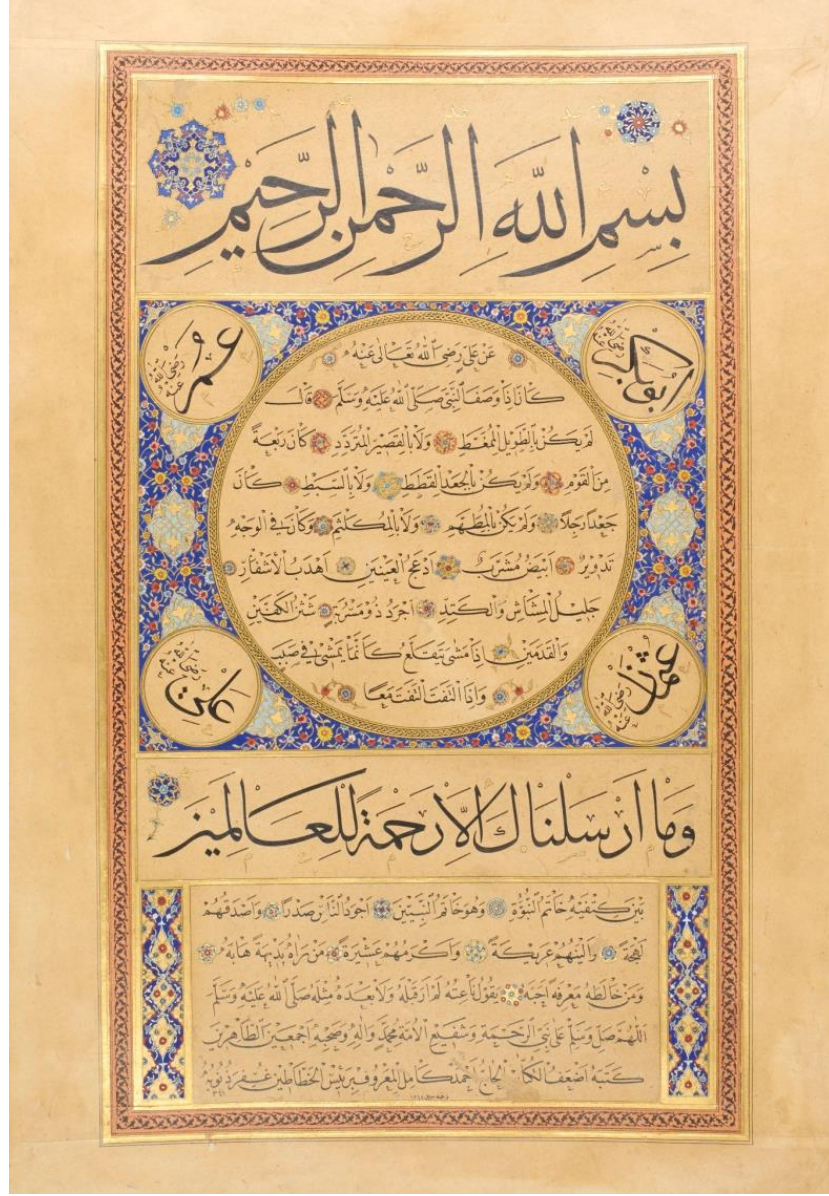 بِسْمِ اللّٰهِ الرَّحْمٰنِ الرَّحِيمِ
ابوبكر رضى الله عنه
عمر رضى الله عنه
عَنْ عَلىٍّ رَضِىَ اللّٰهُ تَعَالىٰ عَنْهُ
كَانَ اِذَا وَصَفَ النَّبِىَّ صَلَّى اللّٰهُ عَلَيْهِ وَسَلَّمَ قَالَ
لَمْ يَكُنْ بِالطَّوِيلِ الْمُمَّغِطِ وَلَا بِالْقَصِيرِ الْمُتَرَدِّدِ كَانَ رَبْعَةً
مِنَ الْقَوْمِ وَلَمْ يَكُنْ بِالْجَعْدِ الْقَطَطِ وَلَا بِالسَّبِطِ كَانَ
جَعْدًا رَجِلًا وَلَمْ يَكُنْ بِالْمُطَهَّمِ وَلَا بِالْمُكَلْثَمِ وَكَانَ فِى الْوَجْهِ
تَدْوِيرٌ اَبْيَضُ مُشْرَبٌ اَدْعَجُ الْعَيْنَيْنِ اَهْدَبُ الْاَشْفَارِ
جَلِيلُ الْمُشَاشِ وَالْكَتَدِ اَجْرَدُ ذُو مَسْرُبَةٍ شَثْنُ الْكَفَّيْنِ
وَالْقَدَمَيْنِ اِذَا مَشٰى يَتَقَلَّعُ كَاَنَّمَا يَمْشِى فِى صَبَبٍ
وَاِذَا الْتَفَتَ الْتَفَتَ مَعًا
عثمان رضى الله عنه
على رضى الله عنه
وَمَا اَرْسَلْنَاكَ اِلَّا رَحْمَةً لِلْعَالَمِينَ
بَيْنَ كَتِفَيْهِ خَاتَمُ النُّبُوَّةِ وَهُوَ خَاتَمُ النَّبِيِّينَ اَجْوَدُ النَّاسِ صَدْرًا وَاَصْدَقُهُمْ
لَهْجَةً وَاَلْيَنُهُمْ عَرِيكَةً وَاَكْرَمُهُمْ عَشِيرَةً مَنْ رَاٰهُ بَدِيهَةً هَابَهُ
وَمَنْ خَالَطَهُ مَعْرِفَةً اَحَبَّهُ يَقُولُ نَاعِتُهُ لَمْ اَرَ قَبْلَهُ وَلَا بَعْدَهُ مِثْلَهُ صَلَّى اللّٰهُ عَلَيْهِ وَسَلَّمَ
اللّٰهُمَّ صَلِّ وَسَلِّمْ عَلىٰ نَبِىِّ الرَّحْمَةِ وَشَفِيعِ الْاُمَّةِ مُحَمَّدٍ وَاٰلِهِ وَصَحْبِهِ اَجْمَعِينَ الطَّاهِرِينَ
كَتَبَهُ اَضْعَفُ الْكُتَّابِ الْحَاجُّ اَحْمَدُ كَامِلُ الْمَعْرُوفُ بِرَئِيسِ الْخَطَّاطِينَ غُفِرَ ذُنُوبُهُ